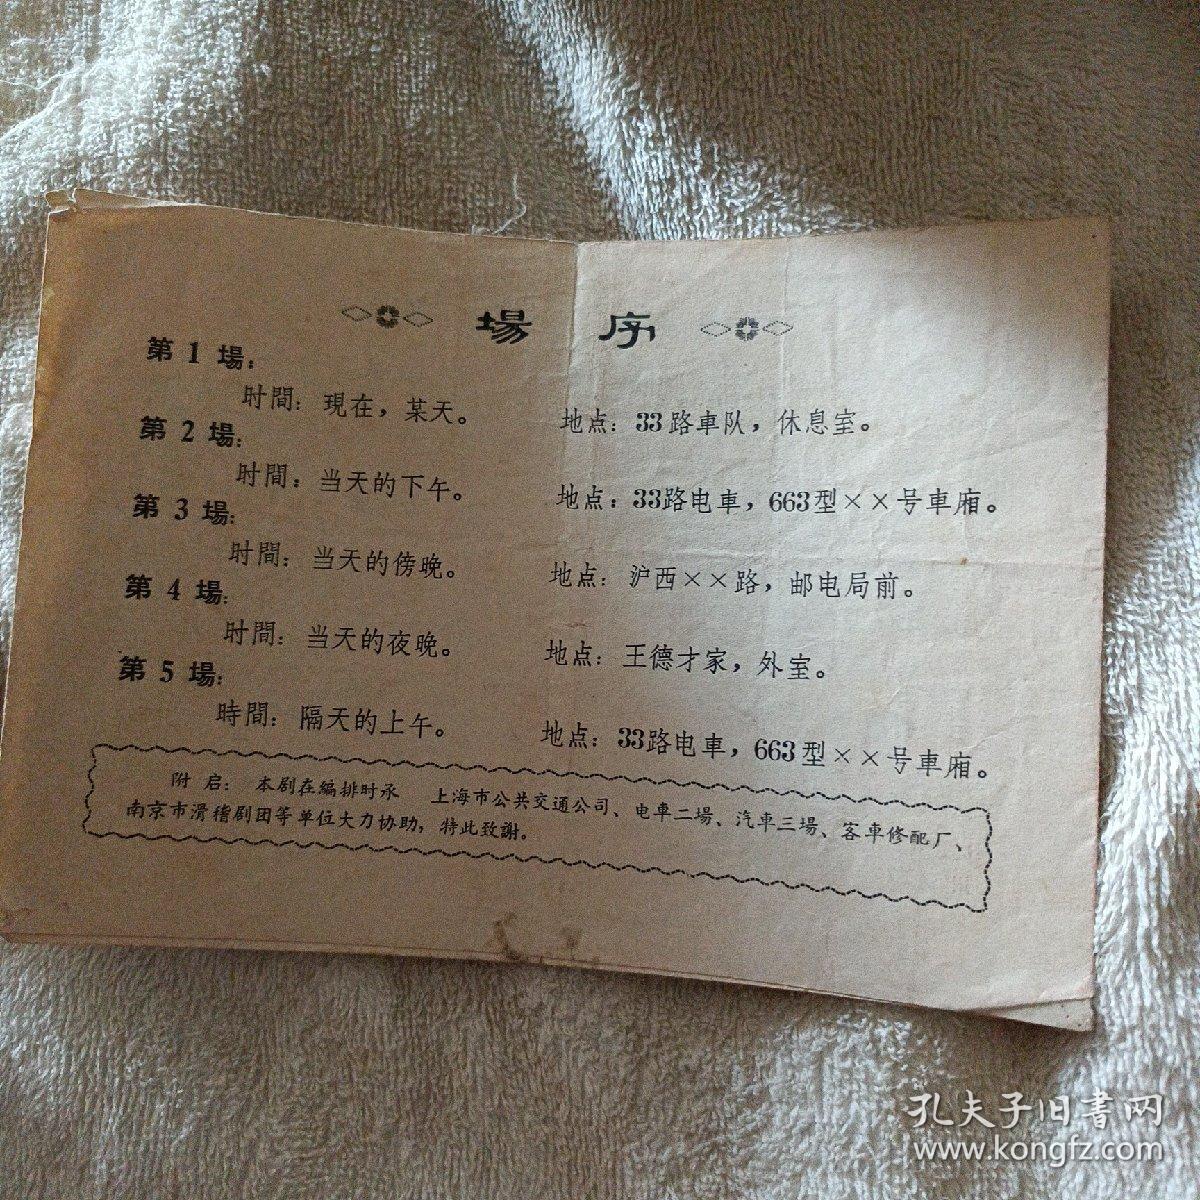 場序
第1場:
时間:現在,某天。 地点:33路車队,休息室。
第2場:
时間:当天的下午。 地点:33路电車,663型××号車廂。
第3場:
时間:当天的傍晚。 地点:沪西××路,邮电局前。
第4場:
时間:当天的夜晚。 地点:王德才家,外室。
第5場:
時間:隔天的上午。 地点:33路电車,663型××号車廂。
附启:本剧在編排时承 上海市公共交通公司、电車二場、汽車三場、客車修配厂、
南京市滑稽剧团等单位大力协助,特此致謝。
孔夫子旧書网
www.kongfz.com